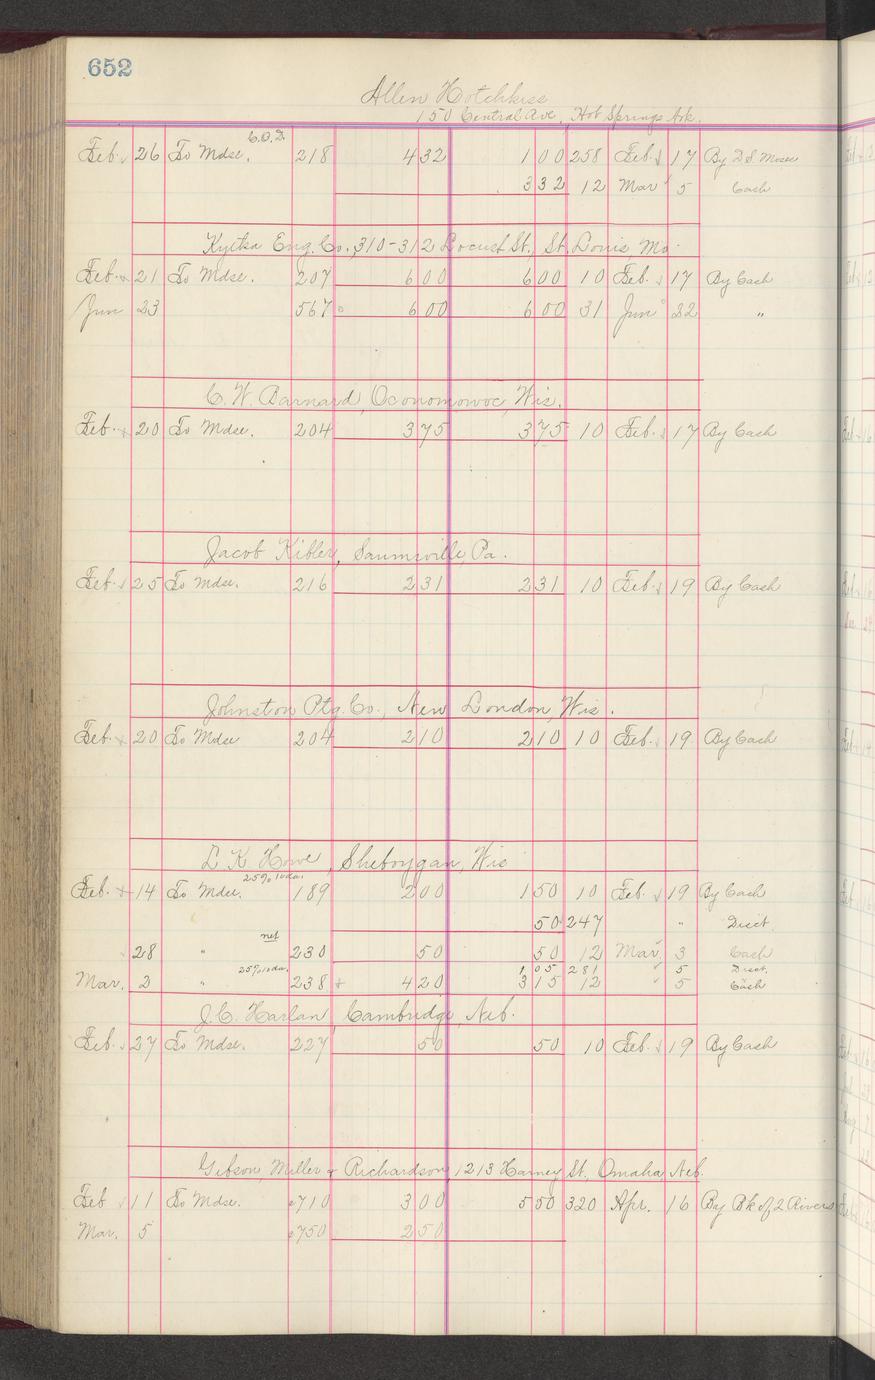 652
Allen Hotchkiss
150 Central Ave, Hot Springs Ark.
C.O.D.
Feb. 26 To Mdse. 218 4 32 1 00 258 Feb. 17 By D S Moser
3 32 12 Mar 5 Cash
Kytka Eng. Co., 310-312 Locust St., St. Louis Mo.
Feb. 21 To Mdse. 207 6 00 6 00 10 Feb. 17 By Cash
Jun 23 567 6 00 6 00 31 Jun 22 "
C. W. Barnard, Oconomowoc, Wis.
Feb. 20 To Mdse. 204 3 75 3 75 10 Feb. 17 By Cash
Jacob Kibler, Saumsville, Pa.
Feb. 25 To Mdse. 216 2 31 2 31 10 Feb. 19 By Cash
Johnston Ptg. Co., New London, Wis.
Feb. 20 To Mdse 204 2 10 2 10 10 Feb. 19 By Cash
L K Howe, Sheboygan, Wis
25% 10 da.
Feb. 14 To Mdse. 189 2 00 1 50 10 Feb. 19 By Cash
50 247 " Disct.
net
28 " 230 50 50 12 Mar. 3 Cash
25% 10 da. 1 05 281 " 5 Disct.
Mar. 2 " 238 4 20 3 15 12 " 5 Cash
J. C. Harlan, Cambridge, Neb.
Feb. 27 To Mdse. 227 50 50 10 Feb. 19 By Cash
Gibson, Miller & Richardson, 1213 Harney St, Omaha, Neb.
Feb 11 To Mdse. 710 3 00 5 50 320 Apr. 16 By Bk of 2 Rivers
Mar. 5 750 2 50